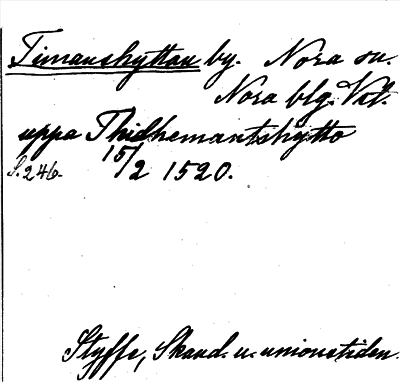 Timanshyttan by. Nora sn.
Nora blg. Vstm.
uppa Thidhemantshytto
S. 246. 15/2 1520.
Styffe, Skand. u. unionstiden.